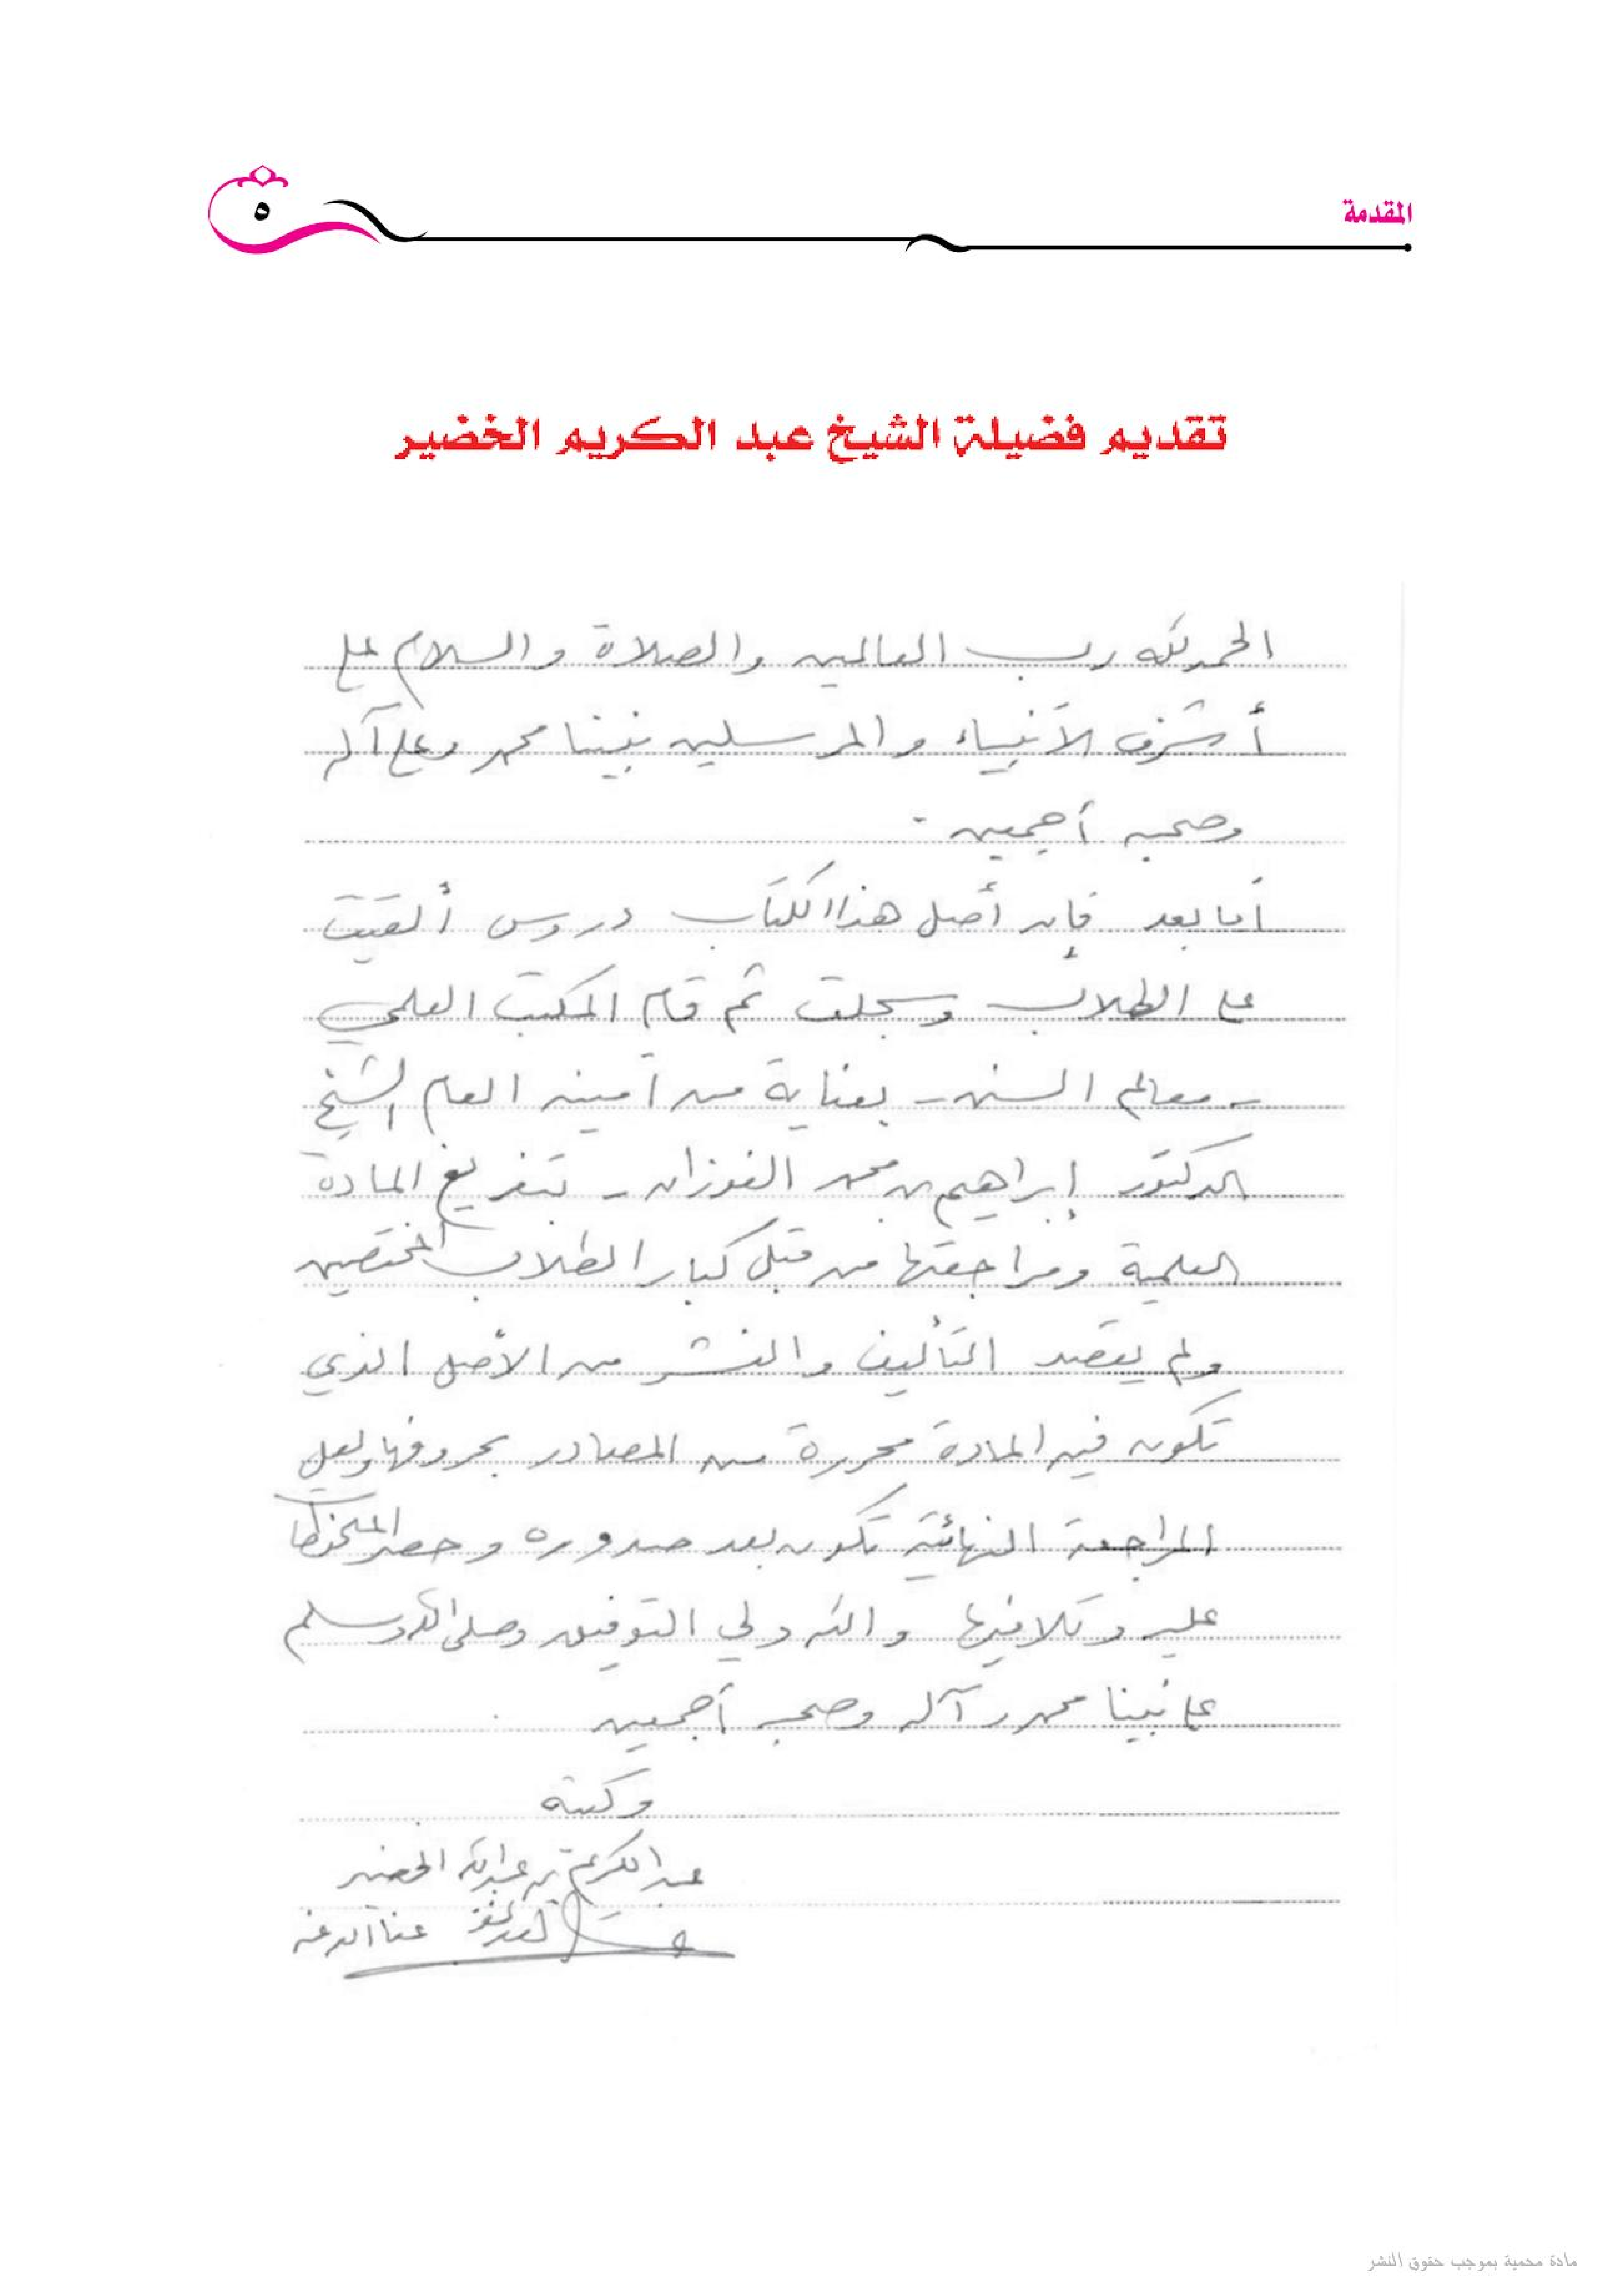 المقدمة
٥
تقديم فضيلة الشيخ عبد الكريم الخضير
الحمد لله رب العالمين والصلاة والسلام على
أشرف الأنبياء والمرسلين نبينا محمد وعلى آله
وصحبه أجمعين.
أما بعد فإن أصل هذا الكتاب دروس ألقيت
على الطلاب وسجلت ثم قام المكتب العلمي
- معالم السنن - بعناية من أمينه العام الشيخ
الدكتور إبراهيم بن محمد الفوزان - بتفريغ المادة
العلمية ومراجعتها من قبل كبار الطلاب المختصين
ولم يقصد التأليف والنشر من الأصل الذي
تكون فيه المادة محررة من المصادر بحروفها ولعل
المراجعة النهائية تكون بعد صدوره وحصر الملحوظات
عليه وتلافيها والله ولي التوفيق وصلى الله وسلم
على نبينا محمد وآله وصحبه أجمعين
وكتبه
عبد الكريم بن عبد الله الخضير
عفا الله عنه
مادة محمية بموجب حقوق النشر